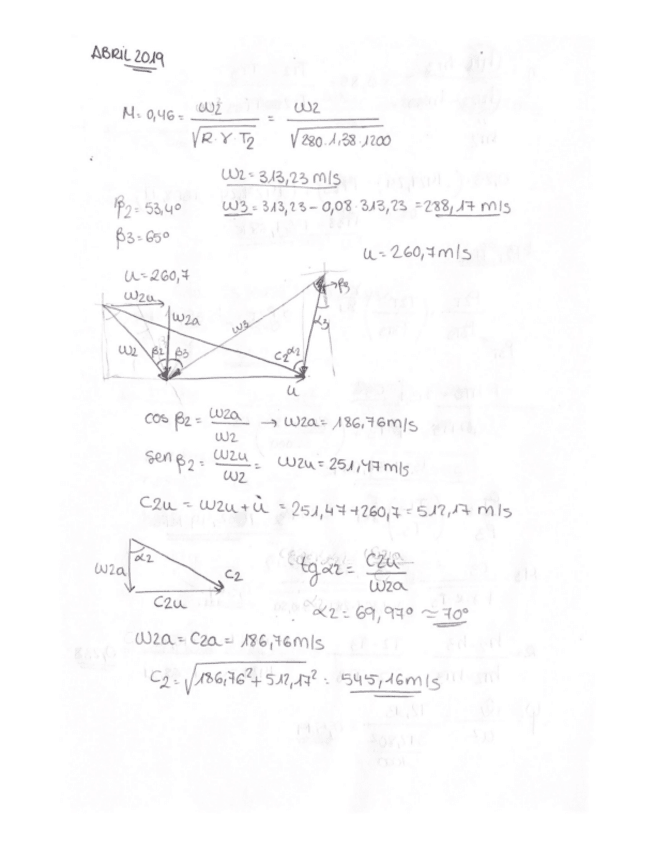 ABRIL 2019
M = 0,46 = ω2 / √R·γ·T2 = ω2 / √280·1,38·1200
ω2 = 313,23 m/s
β2 = 53,4º
ω3 = 313,23 - 0,08·313,23 = 288,17 m/s
β3 = 65º
u = 260,7 m/s
u = 260,7
ω2u
ω2a
β3
α3
ω3
ω2
β2
β3
C2
α2
u
cos β2 = ω2a / ω2 → ω2a = 186,76 m/s
sen β2 = ω2u / ω2 = ω2u = 251,47 m/s
C2u = ω2u + u = 251,47 + 260,7 = 512,17 m/s
α2
ω2a
C2
C2u
tg α2 = C2u / ω2a
α2 = 69,97º ≃ 70º
ω2a = C2a = 186,76 m/s
C2 = √186,76² + 512,17² = 545,16 m/s